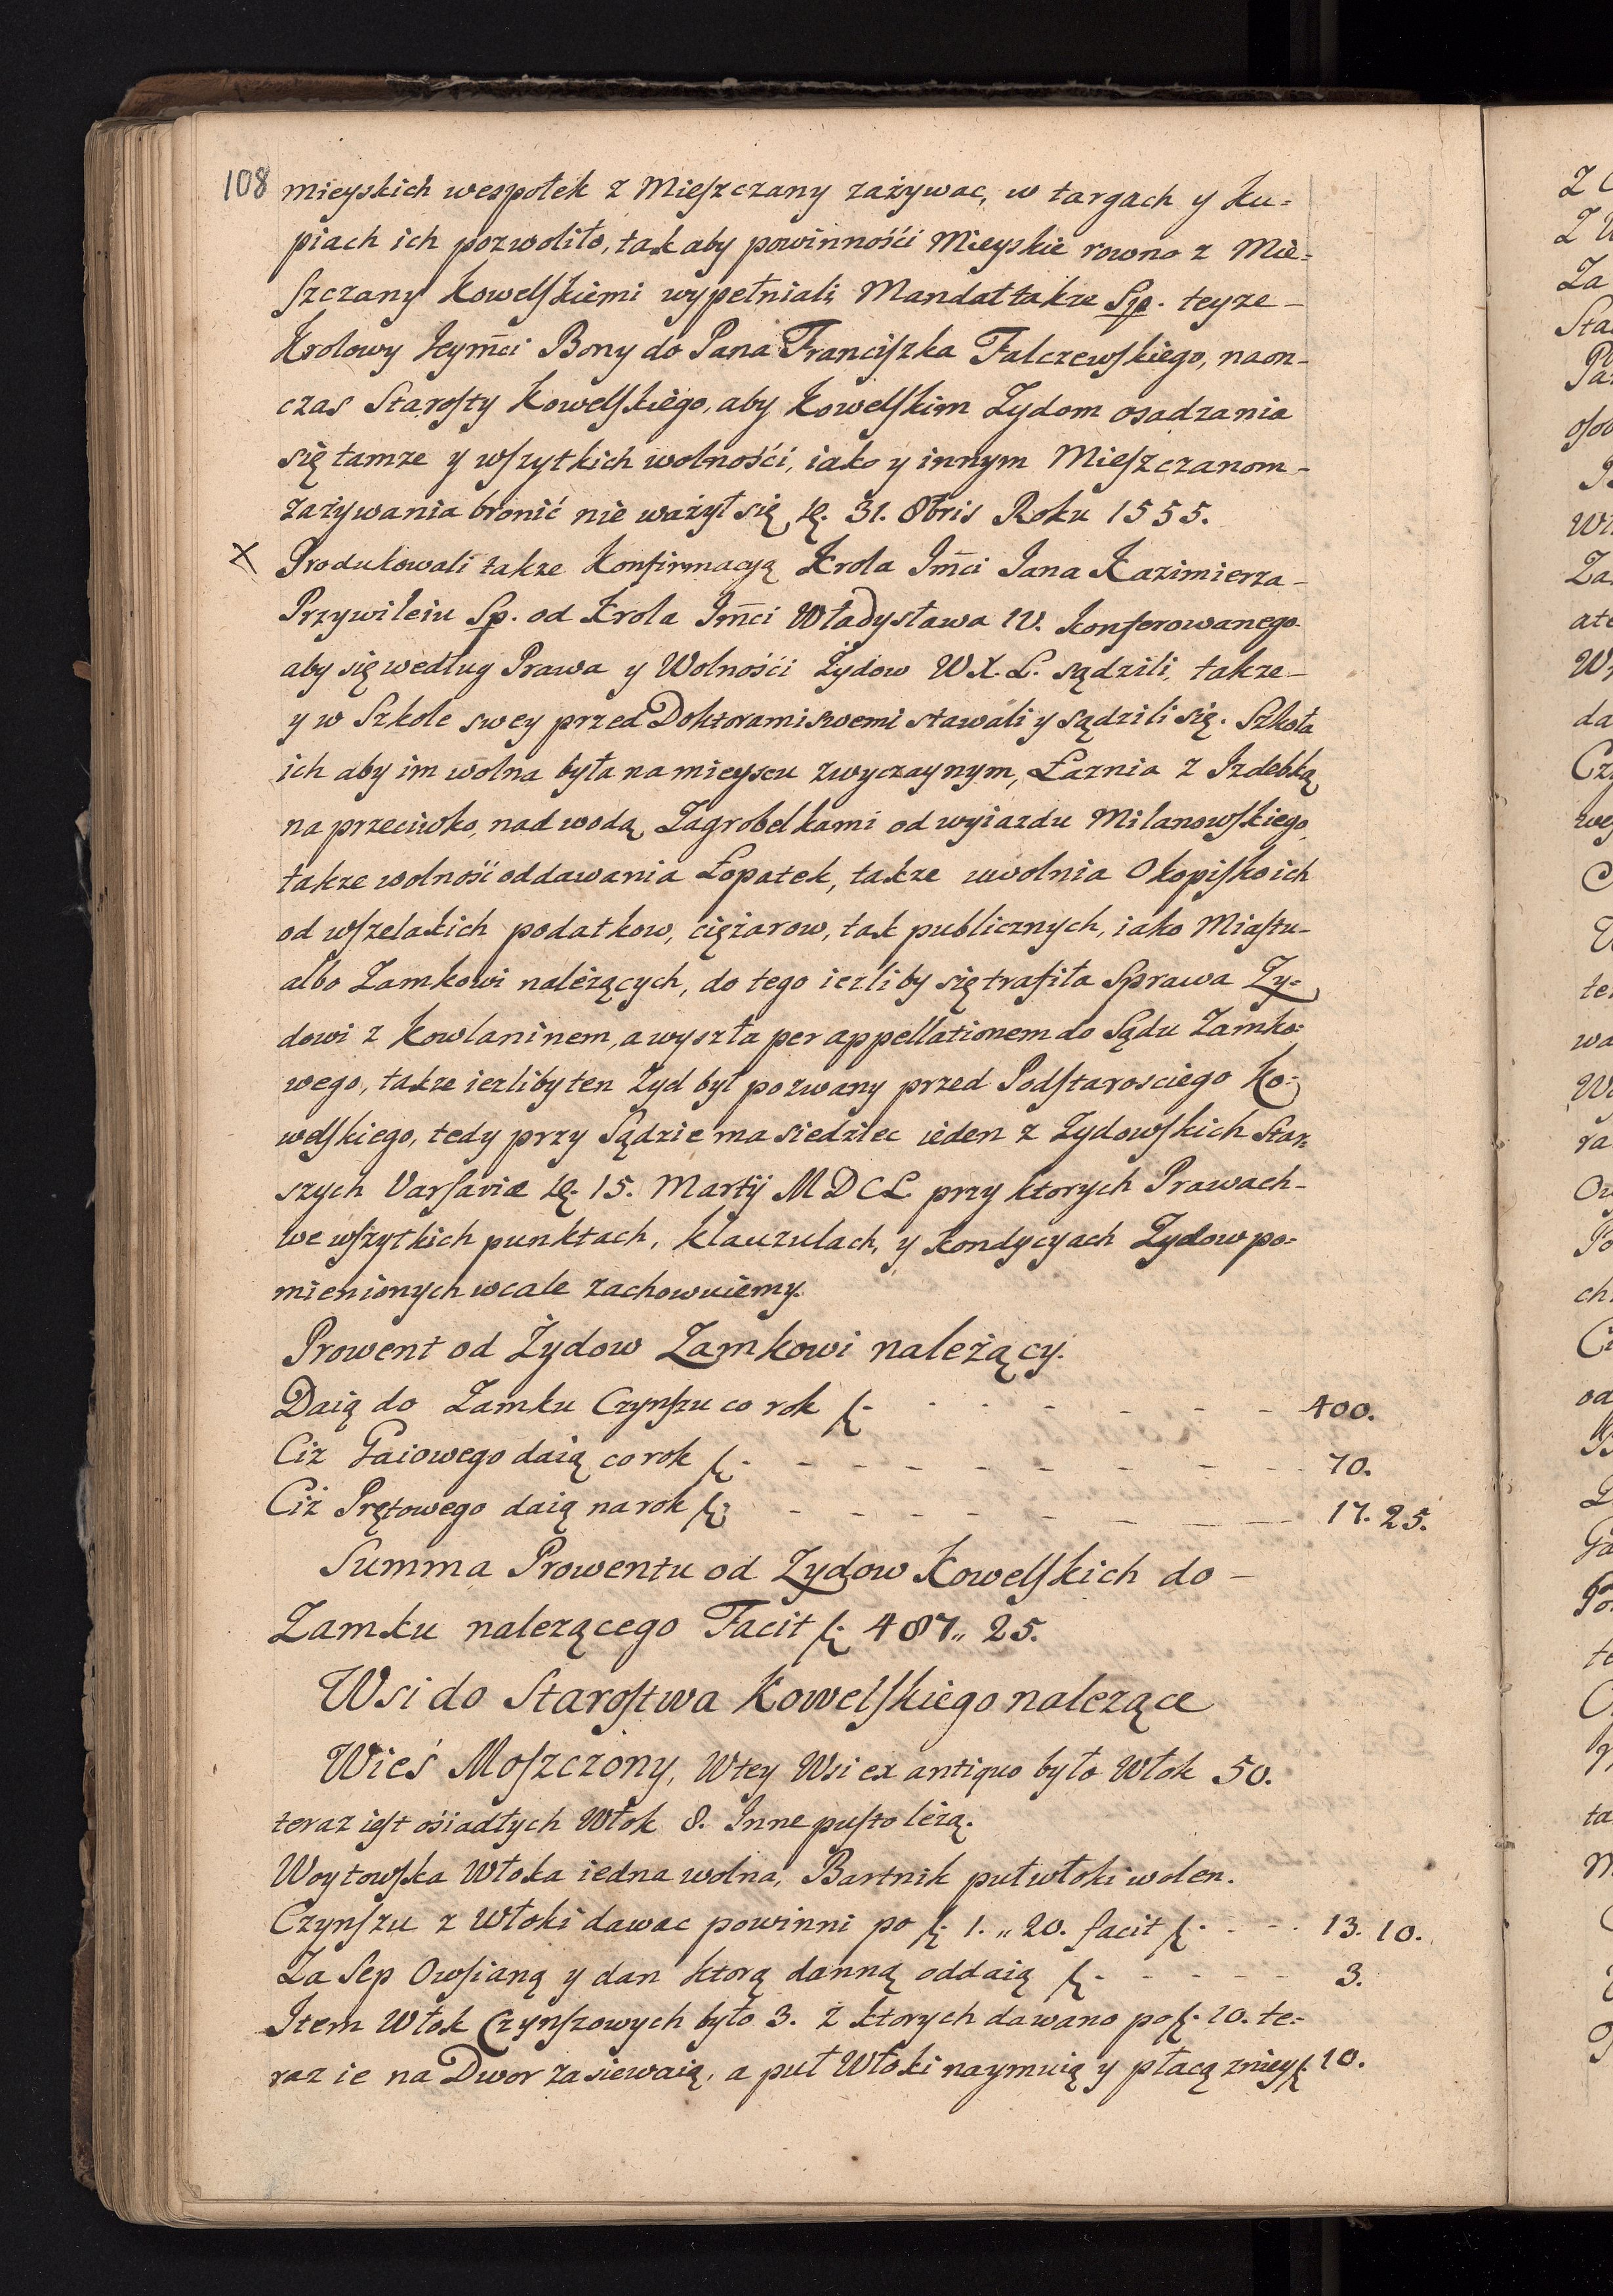 108 mieyskich wespołek z Mieſzczany zażywac, w targach y ku=
piach ich pozwoliło, tak aby powinnośći Mieyskie rowno z Mie=
ſzczany Kowelſkiemi wypełniali, Mandat takze Sp. teyze –
Krolowy Jeym̄ci Bony do Pana Franciſzka Falczewſkiego, naon–
czas Staroſty Kowelſkiego, aby Kowelſkim Zydom osadzania
się tamze y wſzytkich wolnośći, iako y innym Mieſzczanom –
zażywania bronić nie ważył się, 31. 8bris Roku 1555.
X Produkowali takze Konfirmacyą Krola Jm̄ci Jana Kazimierza –
Przywileiu Sp. od Krola Jm̄ci Władysława IV. konferowanego
aby się według Prawa y Wolnośći Żydow W.X.L. sądzili, takze –
y w Szkole swey przed Doktorami swemi stawali y sądzili się. Szkoła
ich aby im wolna była na mieyscu zwyczaynym, Łaznia z Izdebką
na przeciwko, nad wodą Zagrobelkami od wyiazdu Milanowſkiego,
takze wolność oddawania Łopatek, takze uwolnia Okopiſko ich
od wſzelakich podatkow, ciężarow, tak publicznych, iako Miaſtu–
albo Zamkowi należących, do tego ieżliby się trafiła Sprawa Zy=
dowi z Kowlaninem, a wyszła per appellationem do Sądu Zamko=
wego, takze ieżliby ten Zyd był pozwany przed Podſtarosciego Ko=
welſkiego, tedy przy Sądzie ma siedziec ieden z Zydowſkich Star=
szych Varſaviæ 15. Martij MDCL przy ktorych Prawach –
we wſzytkich punktach, klauzulach, y kondycyach Zydow po=
mienionych wcale zachowuiemy.
Prowent od Żydow Zamkowi należący.
Daią do Zamku Czynſzu co rok f. - - - - - - - 400.
Ciż Gaiowego daią co rok f. - - - - - - - - 70.
Ciż Prętowego daią na rok f. - - - - - - - - 17. 25.
Summa Prowentu od Zydow Kowelſkich do –
Zamku nalezącego Facit f. 487,, 25.
Wsi do Staroſtwa Kowelſkiego nalezące
Wieś Moſzczony, W tey Wsi ex antiquo było Włok 50.
teraz ieſt ośiadłych Włok 8. Inne puſto leżą.
Woytowſka Włoka iedna wolna, Bartnik puł włoki wolen.
Czynſzu z Włoki dawac powinni po f. 1.,, 20. facit f. - - - 13. 10.
Za Sep Owſianą y dan ktorą danną oddaią f. - - - - - 3.
Item Włok Czynſzowych było 3. z ktorych dawano po f. 10. te=
raz ie na Dwor zasiewaią, a puł Włoki naymuią y płacą z niey f. 10.